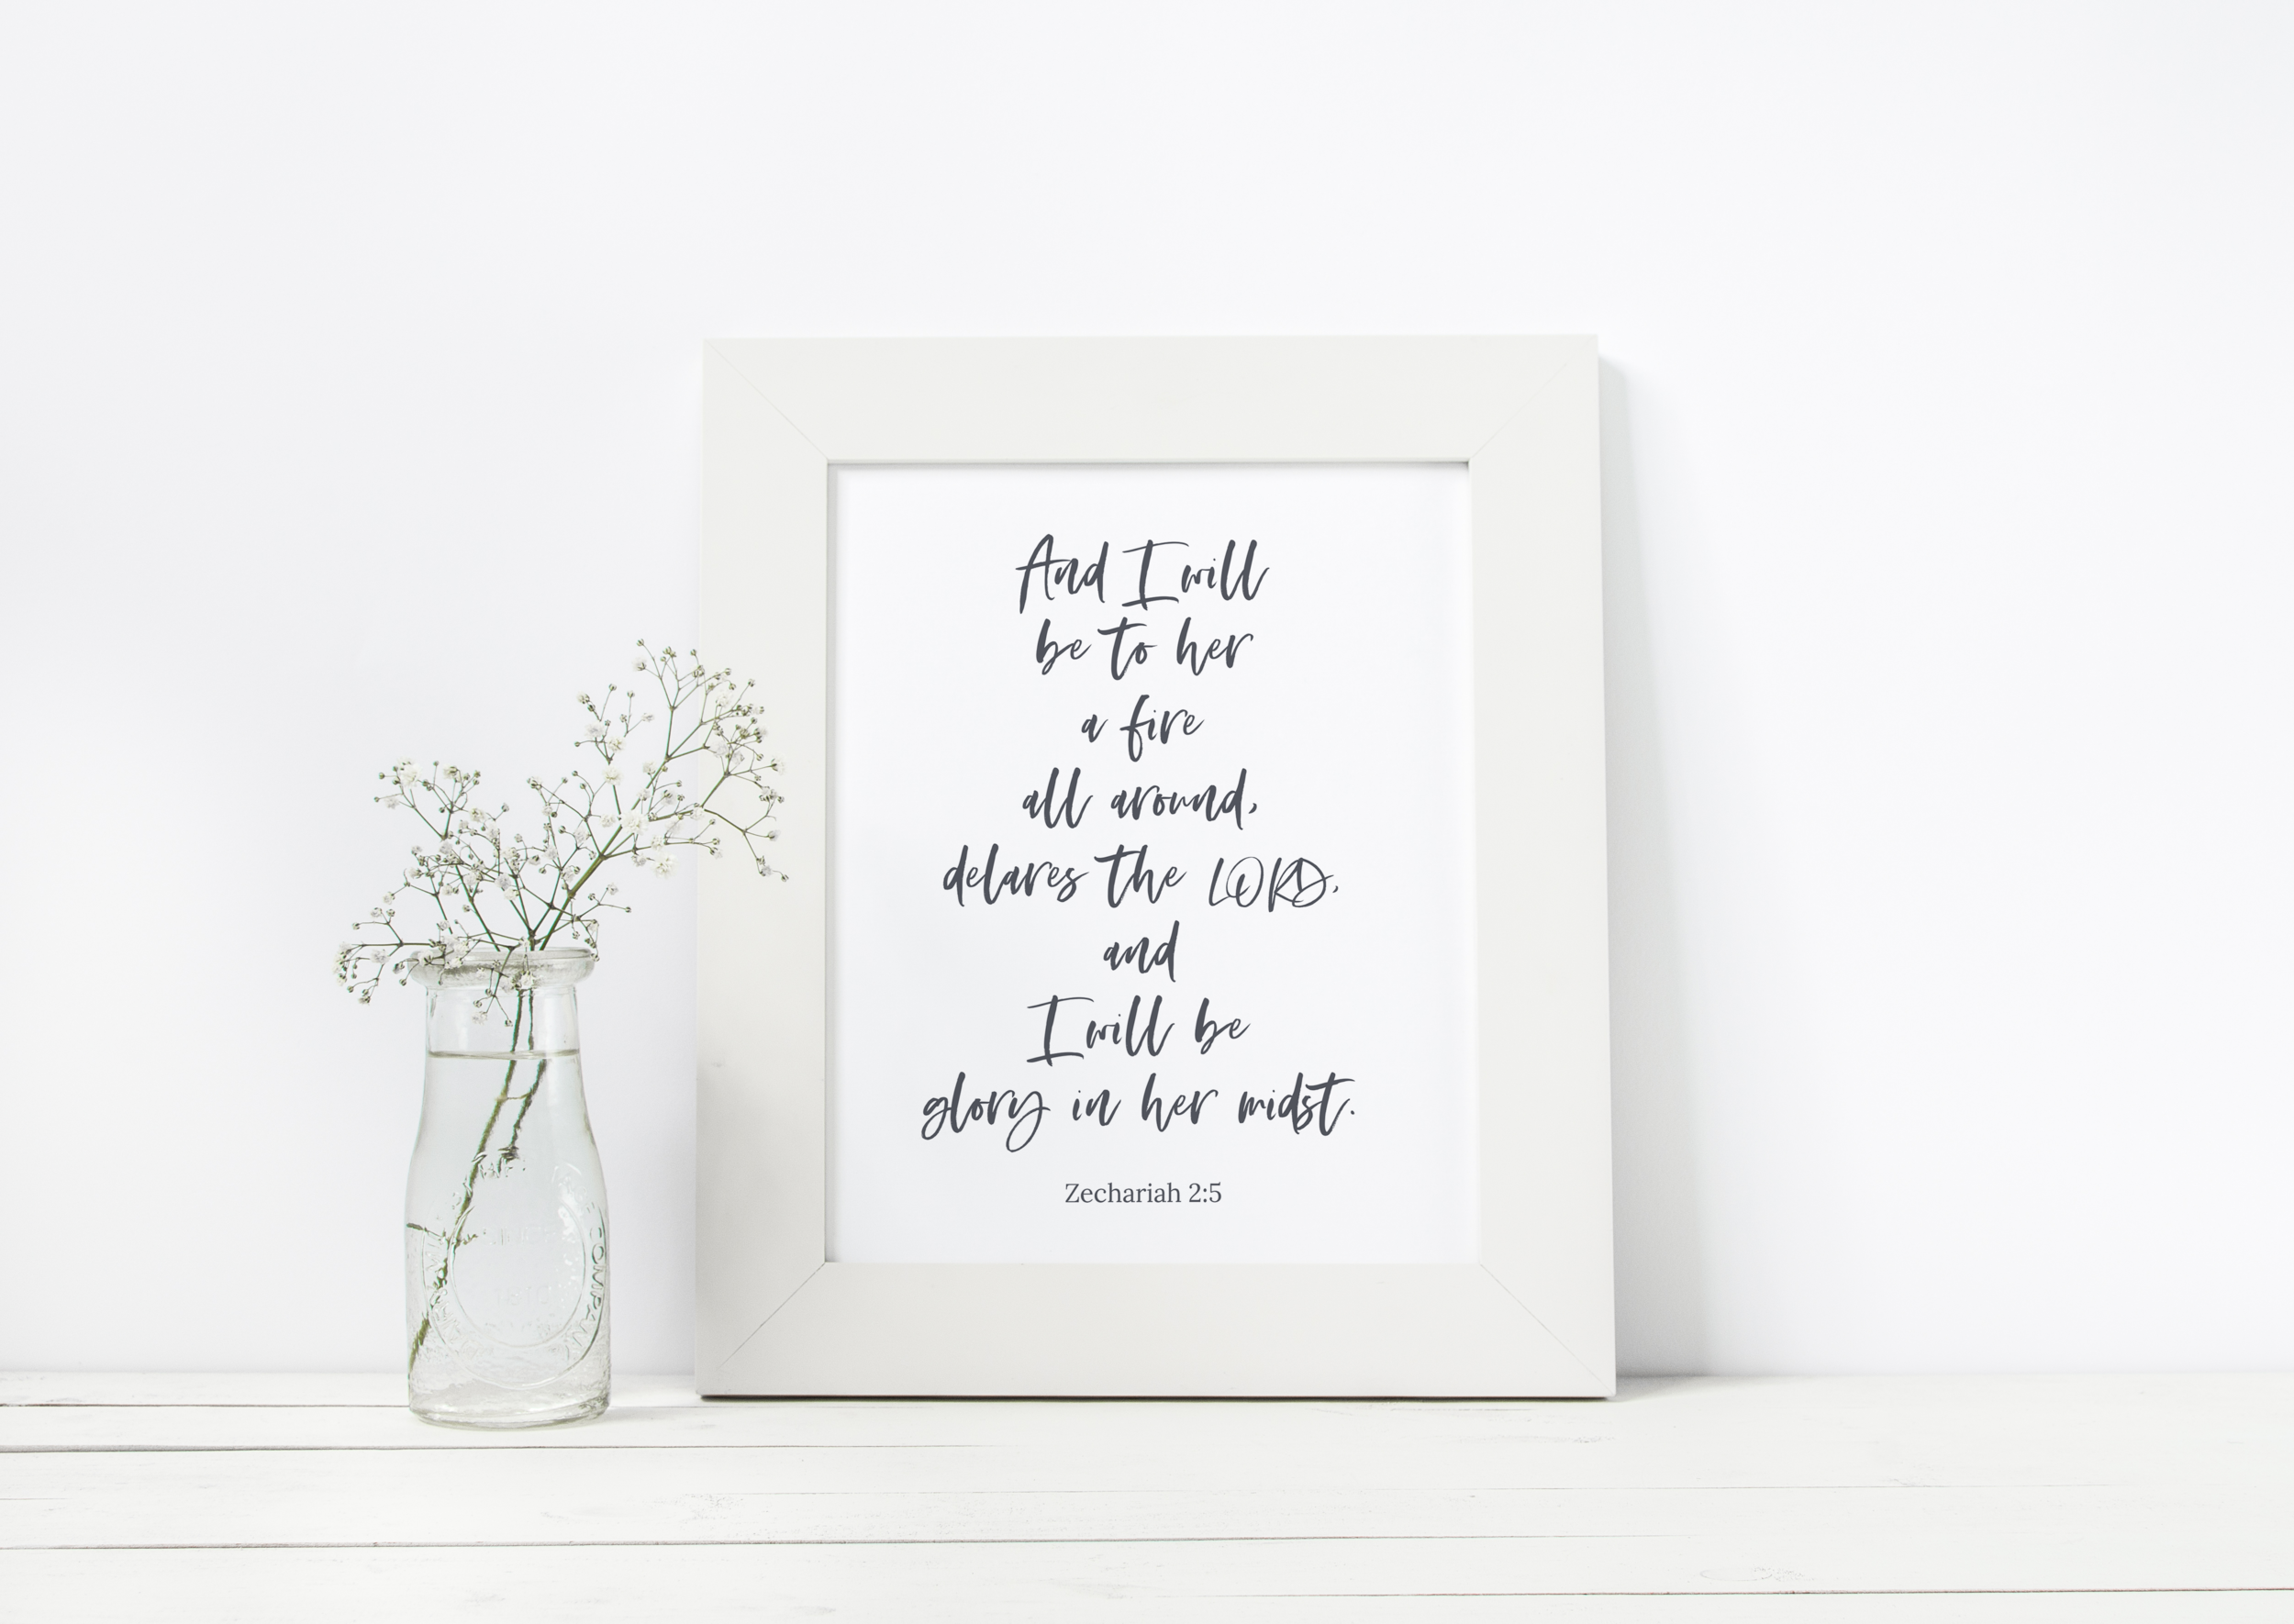 And I will
be to her
a fire
all around,
delares the LORD,
and
I will be
glory in her midst.
Zechariah 2:5
COMPANY